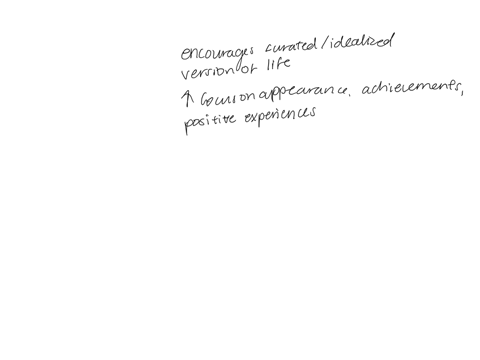 encourages curated/idealized
version of life
↑ focus on appearance, achievements,
positive experiences